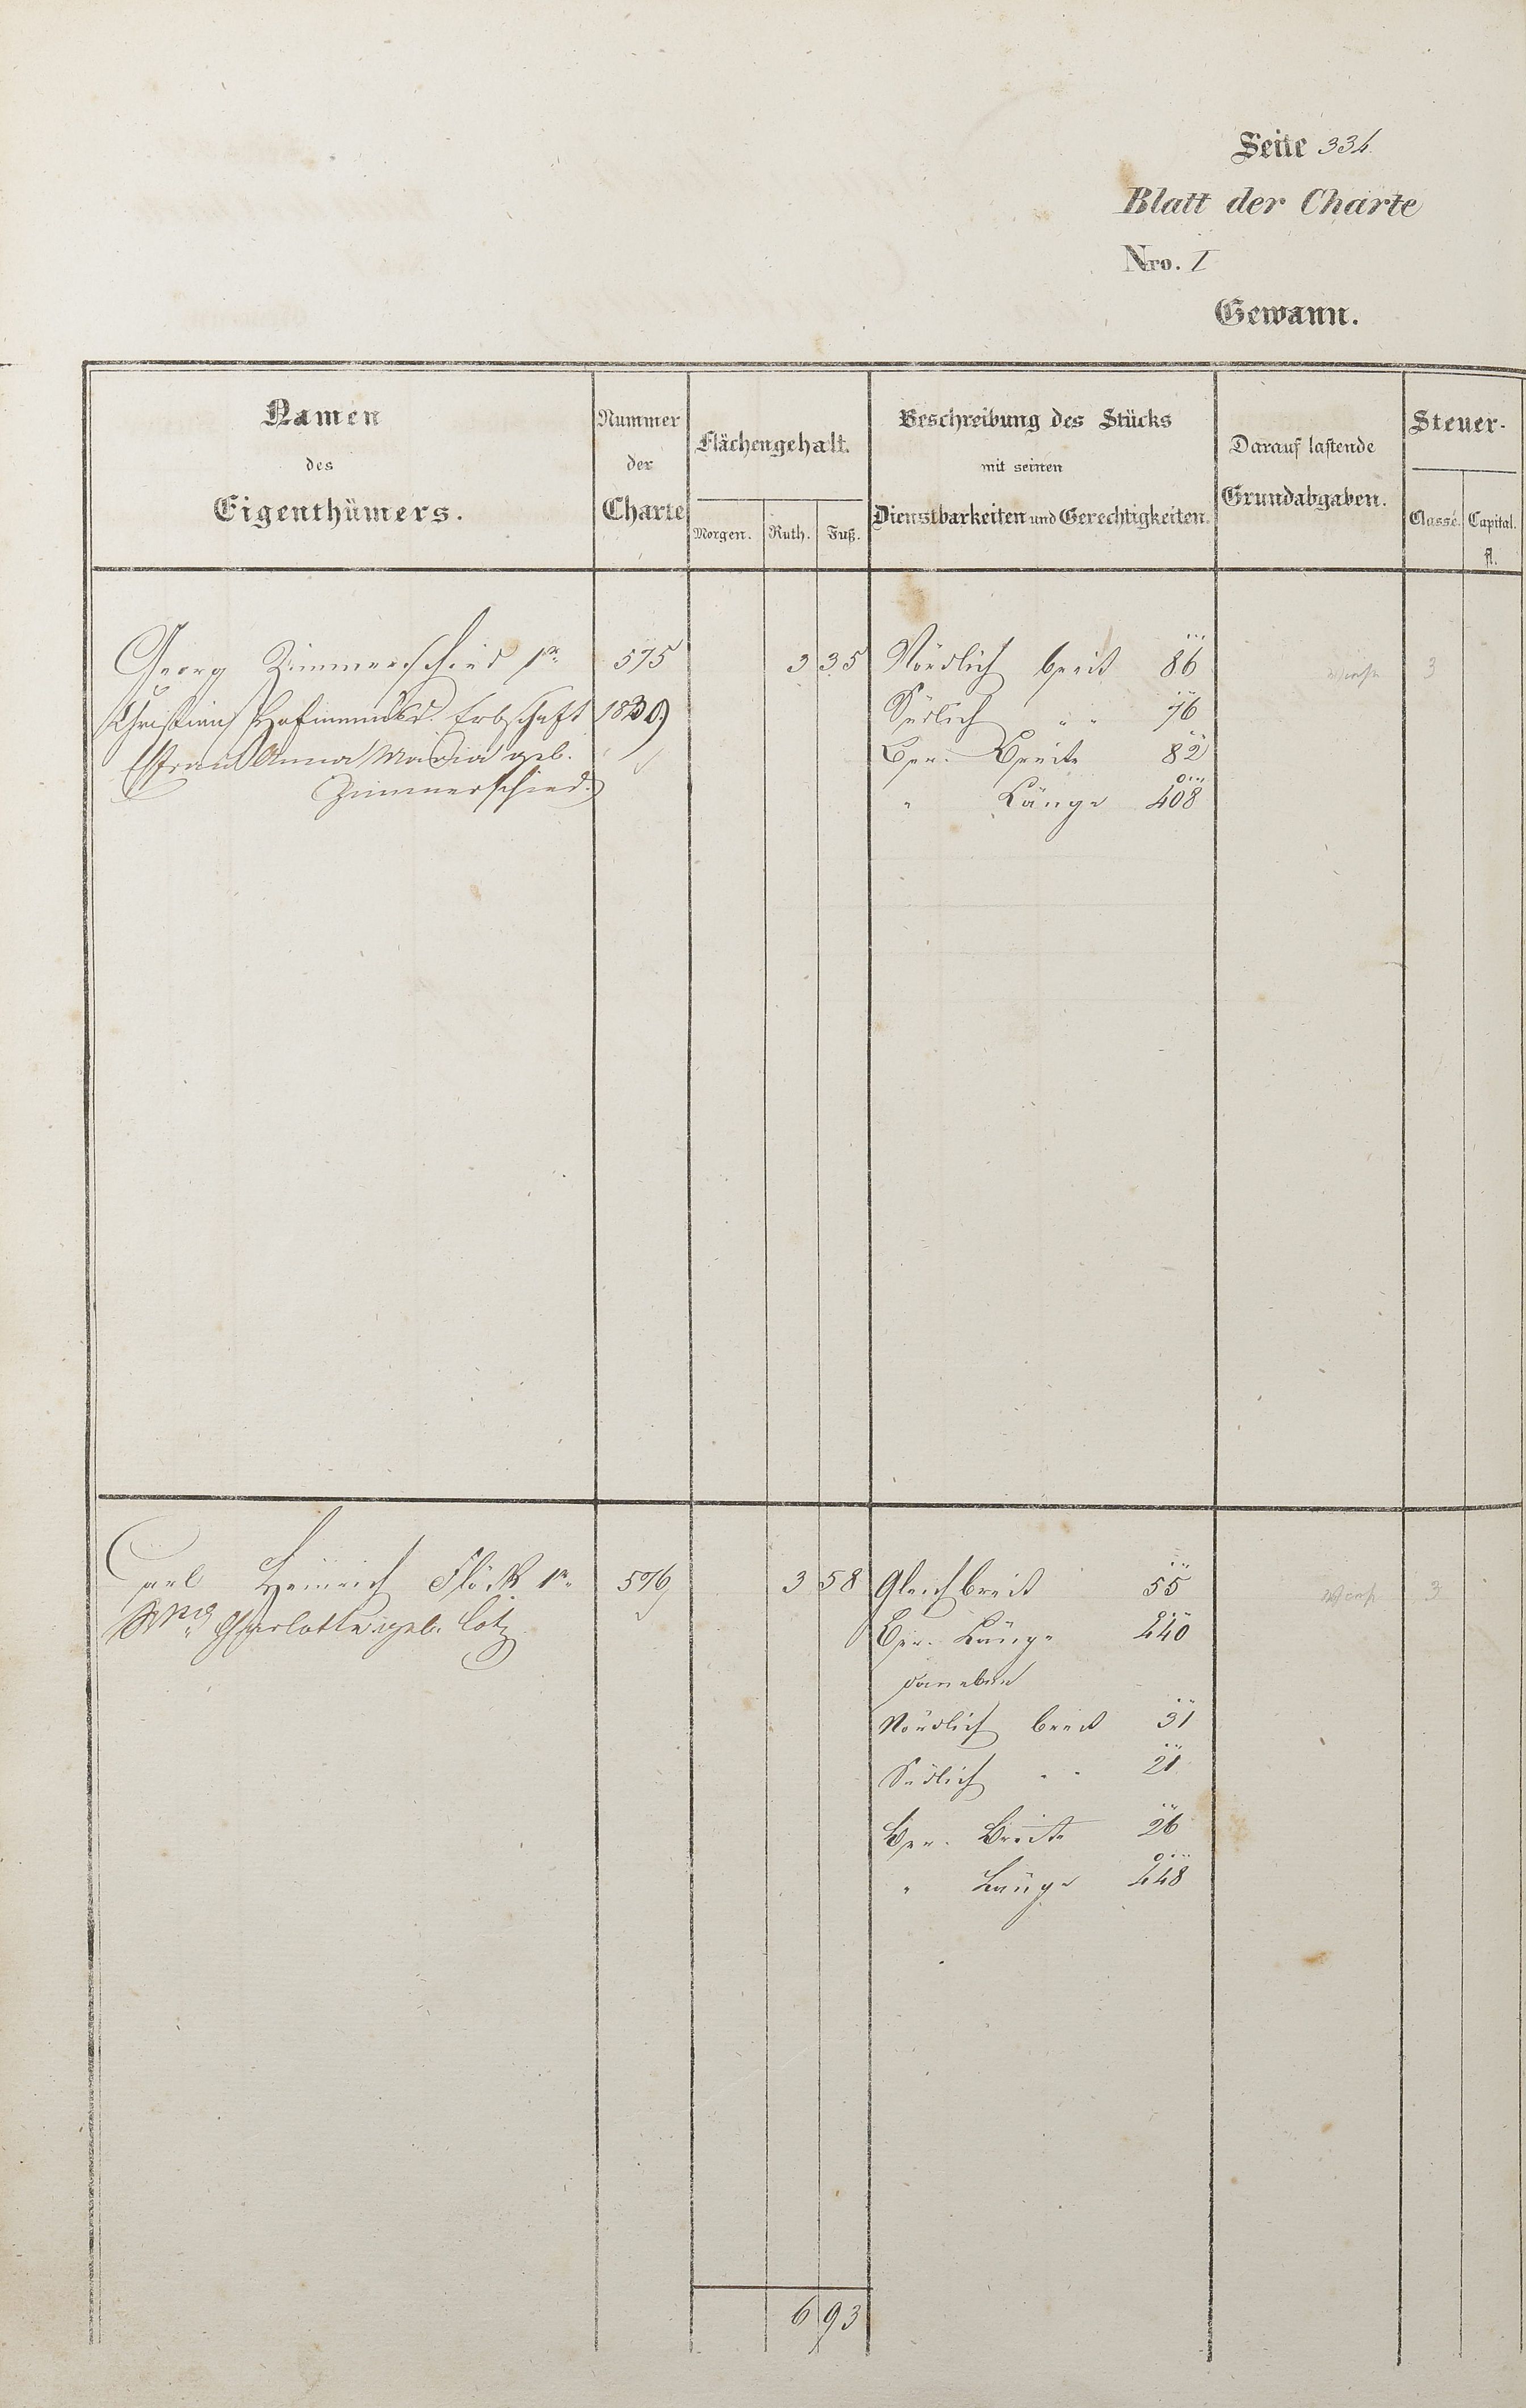 Seite 334
Blatt der Charte
Nro. I
Gewann.
Namen
des
Eigenthümers.
Nummer
der
Charte
Flächengehalt.
Morgen. Ruth. Fuß.
Beschreibung des Stücks
mit seinen
Dienstbarkeiten und Gerechtigkeiten.
Darauf lastende
Grundabgaben.
Steuer-
Classe. Capital.
fl.
Georg Zimmerschied 1r 575 3 35 Nördlich breit 86 3
Christian Erbschaft 1830) Südlich " " 76
(Frau Anna Maria geb. Ber. Breite 82
Zimmerschied.) " Länge 408
Carl Heinrich Flöck 1r 576 3 58 Gleichbreit 55 3
Charlotte geb. Lotz Ber. Länge 440
daneben
Nördlich breit 31
Südlich " " 21
Ber. Breite 26
" Länge 448
6 93